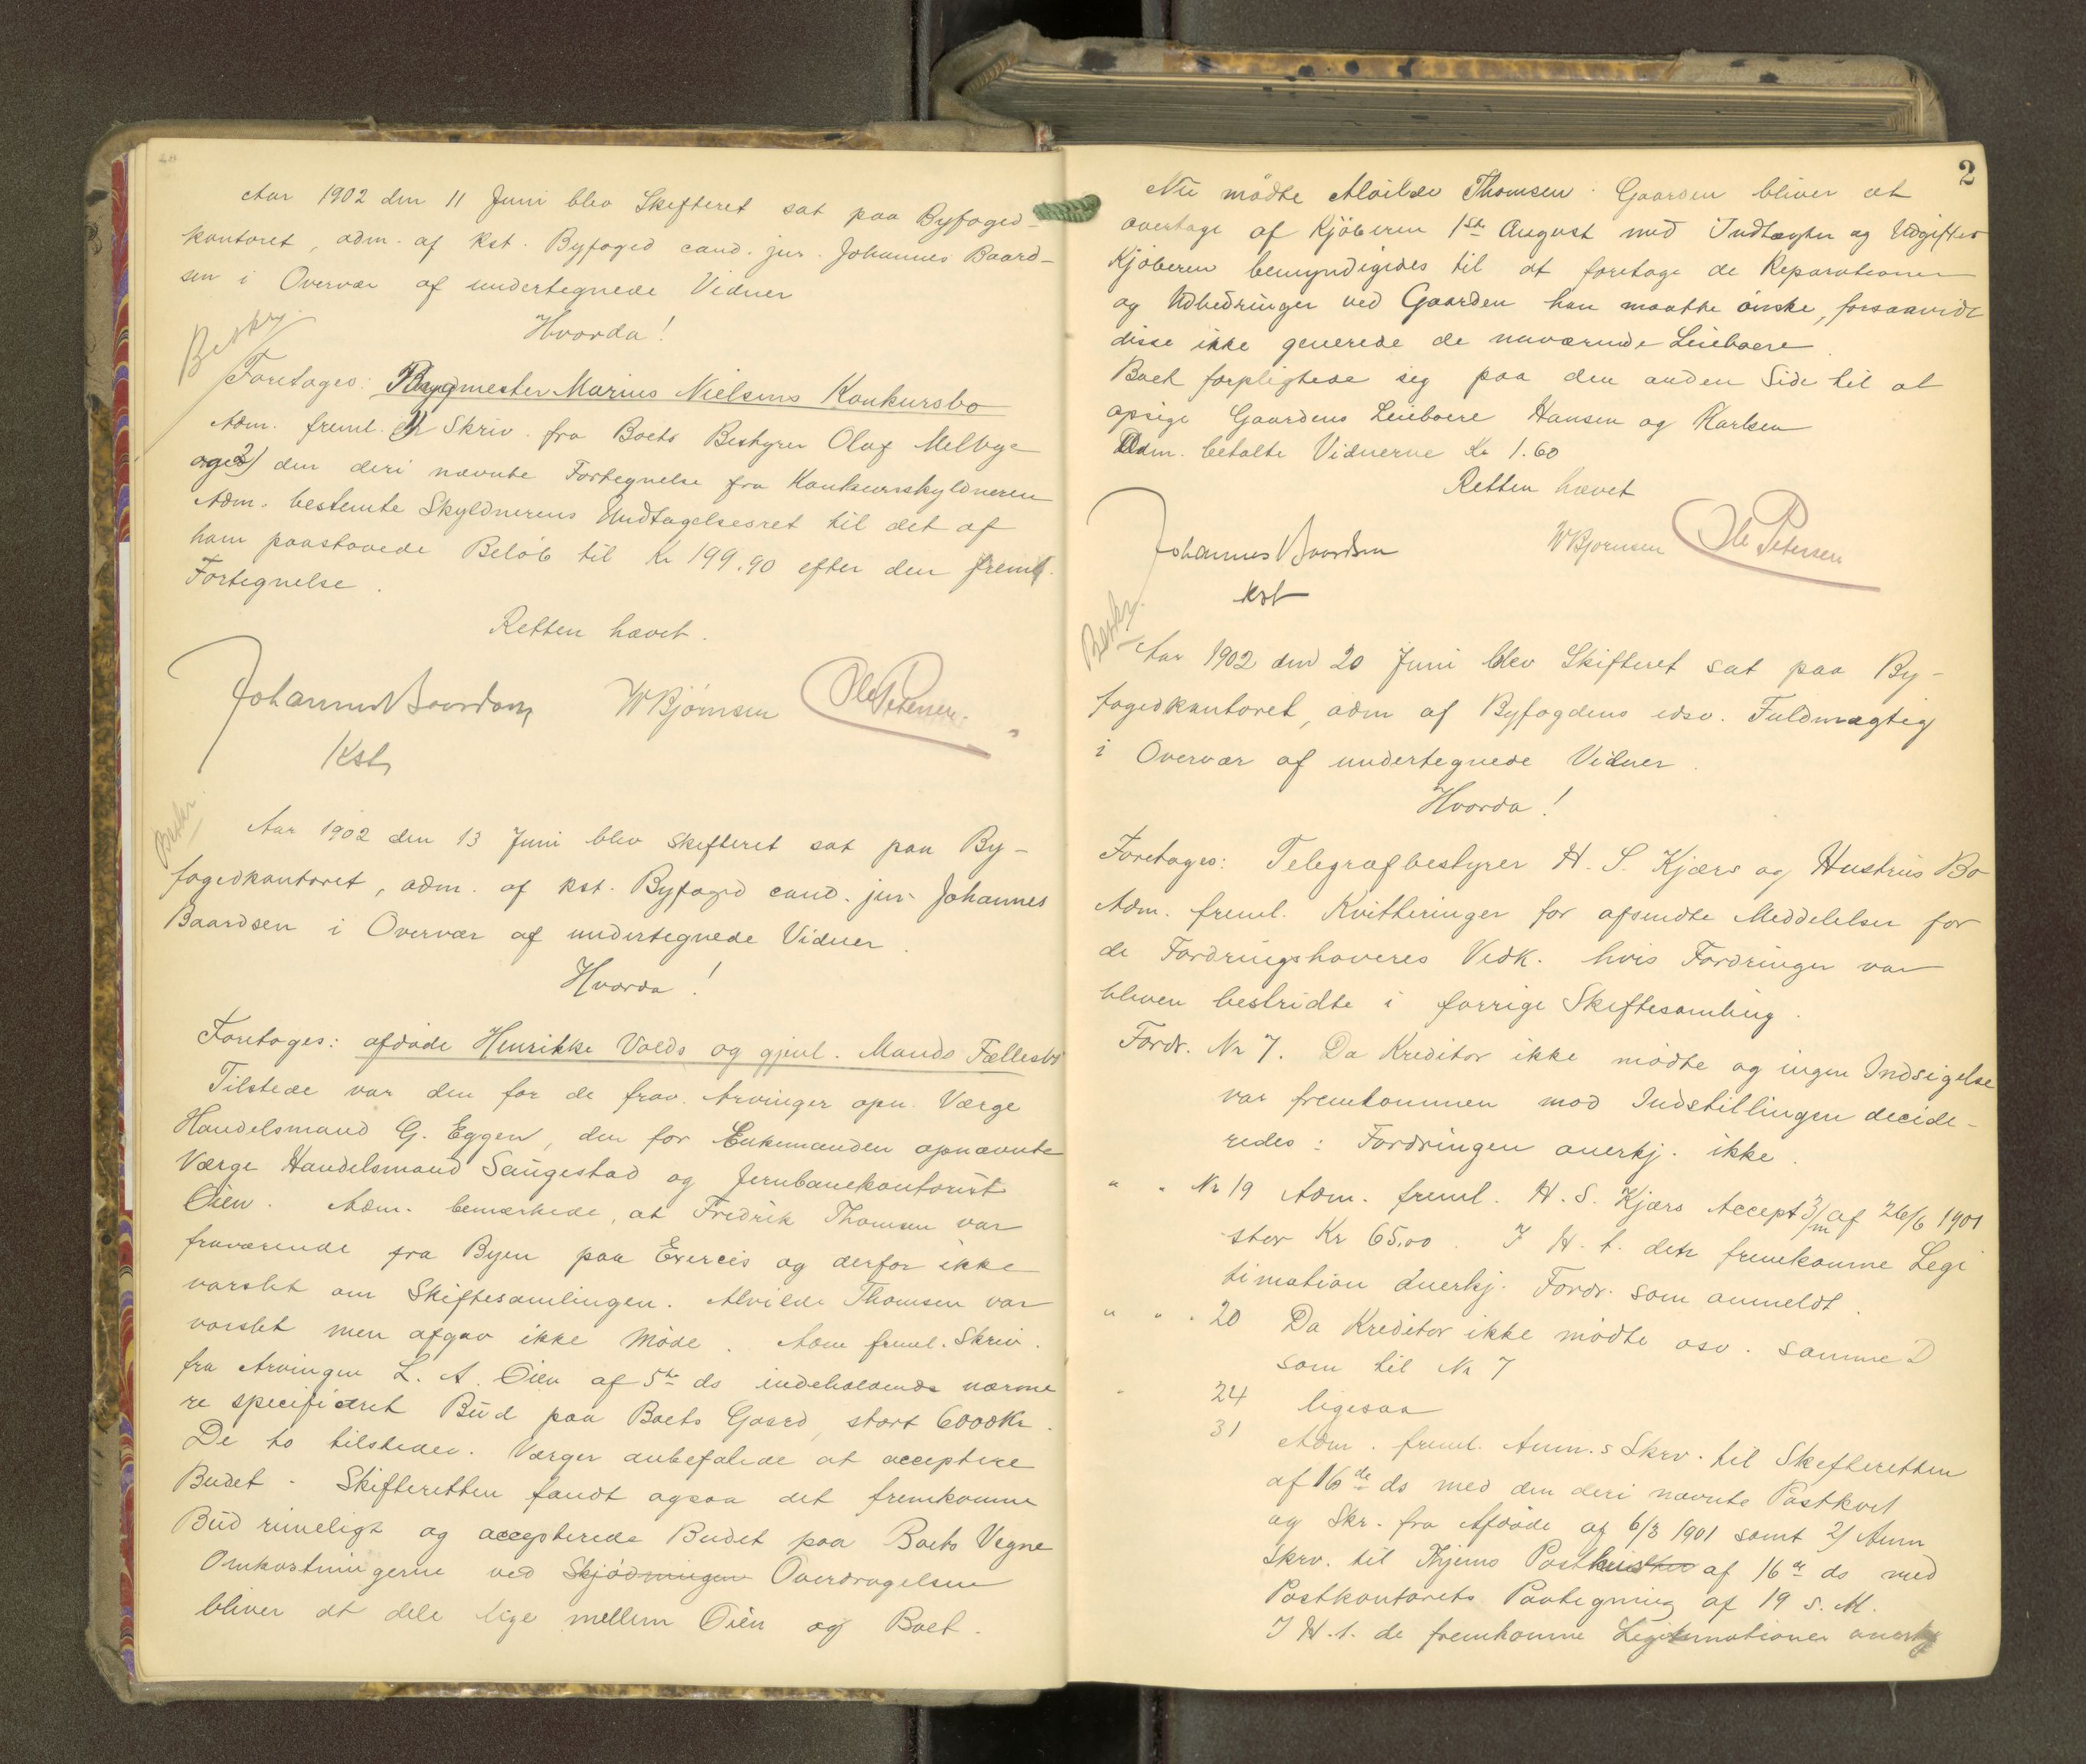 Aar 1902 den 11 Juni blev Skifteret sat paa Byfoged-
kontoret, adm. af kst. Byfoged cand. jur. Johannes Baard-
sen i Overvær af undertegnede Vidner
Hvorda!
Beskr.
Foretoges: Bygmester Marius Nielsens Konkursbo
Adm. freml. 1) Skriv. fra Boets Bestyrer Olaf Melbye
og 2) den deri nævnte Fortegnelse fra Konkursskyldneren
Adm. bestemte Skyldnerens Undtagelsesret til det af
ham paastaaede Beløb til Kr 199.90 efter den freml.
Fortegnelse.
Retten hævet.
Johannes Baardsen W Bjørnsen Ole Petersen
Kst
Beskr.
Aar 1902 den 13 Juni blev Skifteret sat paa By-
fogedkontoret, adm. af kst. Byfoged cand. jur. Johannes
Baardsen i Overvær af undertegnede Vidner.
Hvorda!
Foretoges: afdøde Henrikke Volds og gjenl. Mands Fællesbo
Tilstede var den for de frav. Arvinger opn. Værge
Handelsmand G. Eggen, den for Enkemanden opnævnte
Værge Handelsmand Saugestad og Jernbanekontorist
Öien. Adm. bemærkede, at Fredrik Thomsen var
fraværende fra Byen paa Exercis og derfor ikke
varslet om Skiftesamlingen. Alvilde Thomsen var
varslet men afgav ikke Møde. Adm freml. Skriv.
fra Arvingen L. A. Öien af 5te ds indeholdende nærme
re specificeret Bud paa Boets Gaard, stort 6000 Kr.
De to tilstedev. Værger anbefalede at acceptere
Budet. Skifteretten fandt ogsaa det fremkomne
Bud rimeligt og accepterede Budet paa Boets Vegne
Omkostningerne ved Skjødningen Overdragelsen
bliver at dele lige mellem Öien og Boet.
2
Nu mødte Alvilde Thomsen. Gaarden bliver at
overtage af Kjøberen 1ste August med Indtægter og Udgifter
Kjøberen bemyndigedes til at foretage de Reparationer
og Udbedringer ved Gaarden han maatte ønske, forsaavidt
disse ikke generede de nuværende Leieboere.
Boet forpligtede sig paa den anden Side til at
opsige Gaardens Leieboere Hansen og Karlsen
Adm. betalte Vidnerne Kr 1.60
Retten hævet
Johannes Baardsen W Bjørnsen Ole Petersen
kst
Beskr.
Aar 1902 den 20 Juni blev Skifteret sat paa By-
fogedkontoret, adm af Byfogdens edsv. Fuldmægtig
i Overvær af undertegnede Vidner.
Hvorda!
Foretoges: Telegrafbestyrer H. S. Kjærs og Hustrus Bo
Adm. freml. Kvitteringer for afsendte Meddelelser for
de Fordringshaveres Vedk. hvis Fordringer var
bleven bestridte i forrige Skiftesamling.
Fordr. Nr 7. Da Kreditor ikke mødte og ingen Indsigelse
var fremkommen mod Indstillingen decide-
redes: Fordringen anerkj. ikke.
" " Nr 19 Adm. freml. H. S. Kjærs Accept 3/m af 26/6 1901
stor Kr 65.00. I H. t. den fremkomne Legi
timation anerkj. Fordr. som anmeldt.
" " " 20 Da Kreditor ikke mødte osv. samme D
som til Nr 7
" 24 ligesaa
31 Adm. freml. Anm.s Skrv. til Skifteretten
af 16de ds med den deri nævnte Postkvit
og Skr. fra Afdøde af 6/3 1901 samt 2) Anm
Skrv. til Postk af 16de ds med
Postkontorets Paategning af 19 s. M.
I H. t. de fremkomne Legitimationer anerkj